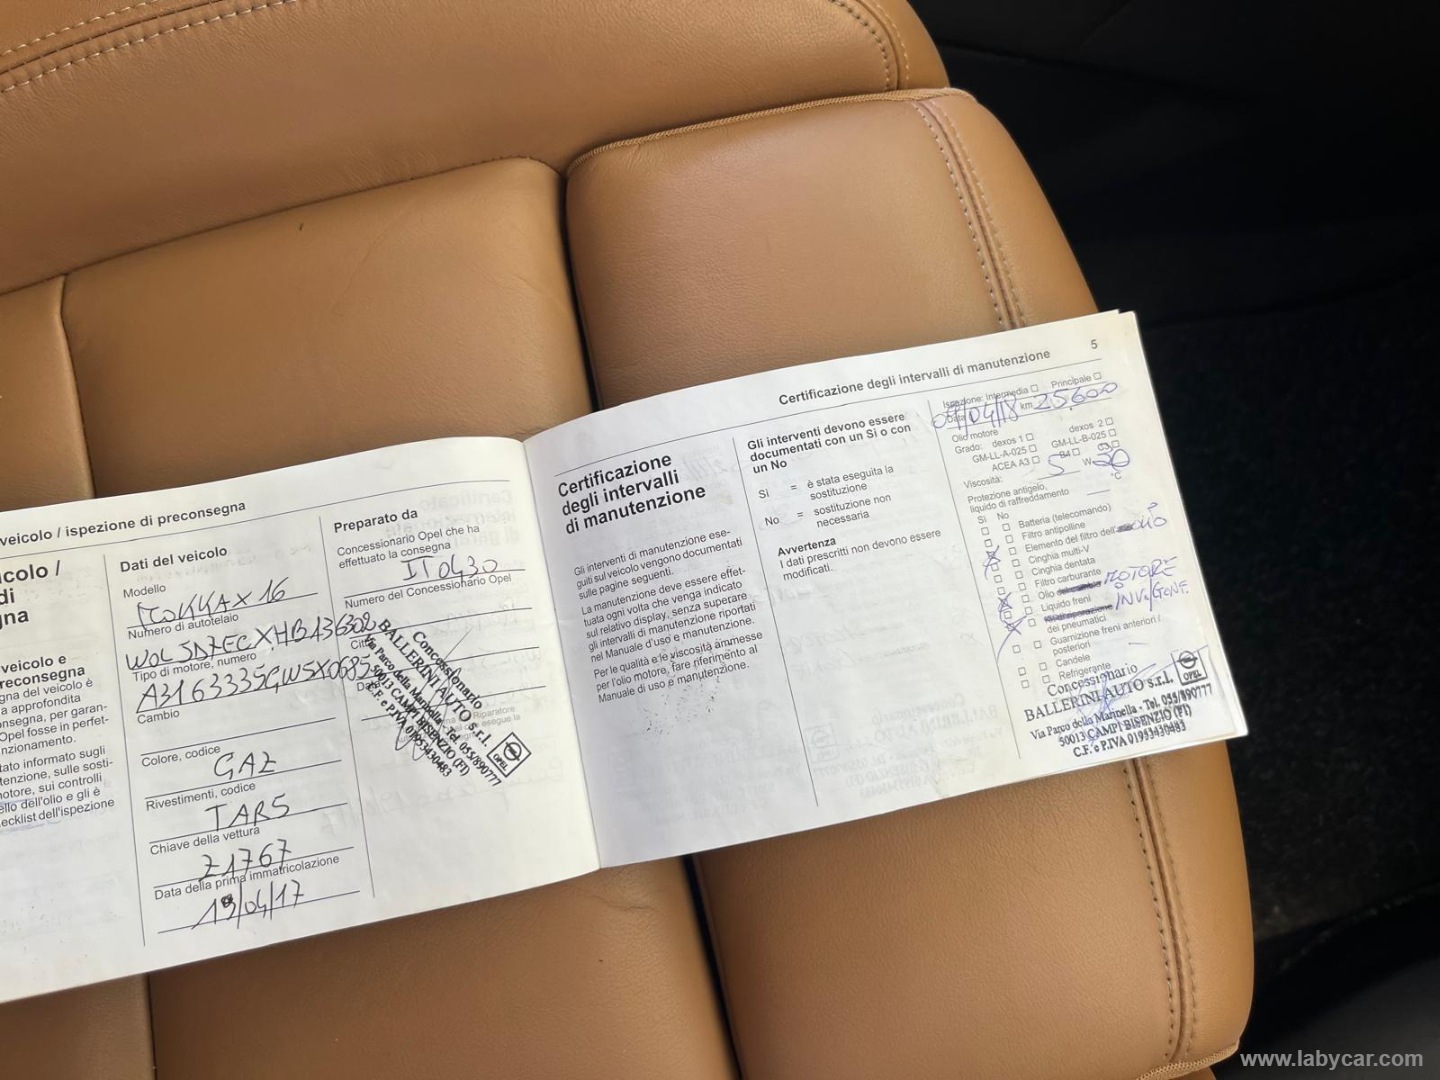 veicolo / ispezione di preconsegna
icolo /
di
gna
veicolo e
reconsegna
gna del veicolo è
a approfondita
onsegna, per garan-
Opel fosse in perfet-
nzionamento.
tato informato sugli
tenzione, sulle sosti-
otore, sui controlli
ello dell'olio e gli è
ecklist dell'ispezione
Dati del veicolo
Modello
MOKKA X 16
Numero di autotelaio
Tipo di motore, numero
Cambio
Colore, codice
GAZ
Rivestimenti, codice
TAR5
Chiave della vettura
Z1767
Data della prima immatricolazione
19/04/17
Preparato da
Concessionario Opel che ha
effettuato la consegna
IT0430
Numero del Concessionario Opel
Concessionario
BALLERINI AUTO s.r.l.
Via Parco della Marinella - Tel. 055/890777
50013 CAMPI BISENZIO (FI)
C.F. e P.IVA 01953430483
OPEL
Certificazione degli intervalli di manutenzione
5
Certificazione
degli intervalli
di manutenzione
Gli interventi di manutenzione ese-
guiti sul veicolo vengono documentati
sulle pagine seguenti.
La manutenzione deve essere effet-
tuata ogni volta che venga indicato
sul relativo display, senza superare
gli intervalli di manutenzione riportati
nel Manuale d'uso e manutenzione.
Per le qualità e le viscosità ammesse
per l'olio motore, fare riferimento al
Manuale di uso e manutenzione.
Gli interventi devono essere
documentati con un Sì o con
un No
Sì = è stata eseguita la
sostituzione
No = sostituzione non
necessaria
Avvertenza
I dati prescritti non devono essere
modificati.
Ispezione: Intermedia Principale
Data 04/18 km 25.600
Olio motore
Grado: dexos 1 dexos 2
GM-LL-A-025 GM-LL-B-025
ACEA A3 B4 C3
Viscosità: 5 W 30
Protezione antigelo, °C
liquido di raffreddamento
Sì No
Batteria (telecomando)
Filtro antipolline
Elemento del filtro dell' olio
Cinghia multi-V
Cinghia dentata
Filtro carburante
Olio MOTORE
Liquido freni
INV/GONF.
dei pneumatici
Guarnizione freni anteriori /
posteriori
Candele
Refrigerante
Concessionario
BALLERINI AUTO s.r.l.
OPEL
Via Parco della Marinella - Tel. 055/890777
50013 CAMPI BISENZIO (FI)
C.F. e P.IVA 01953430483
www.labycar.com